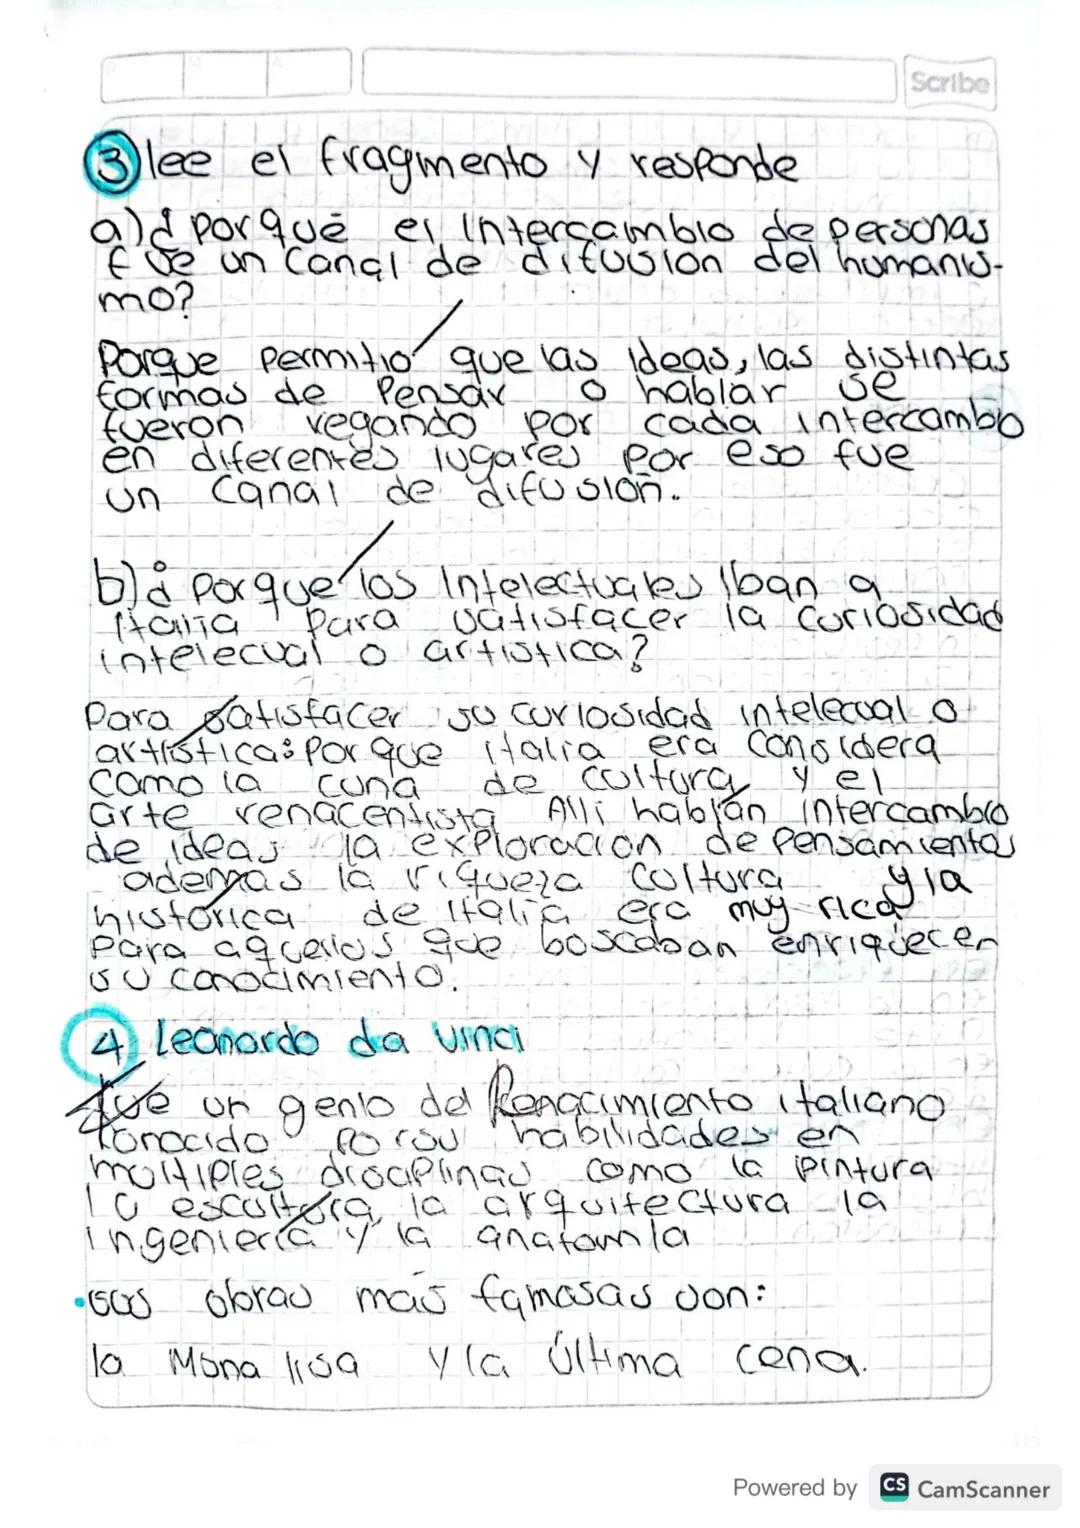 Scribe
3 lee el fragmento y responde
a) ¿Por qué el intercambio de personas
fue un canal de difusion del humanis-
mo?
Porque permitio que las ideas, las distintas
formas de Pensar o hablar se
fueron regando por cada intercambio
en diferentes lugares por eso fue
un canal de difusión.
b) ¿Porque los intelectuales iban a
italia para satisfacer la curiosidad
intelecual o artistica?
Para satisfacer su curiosidad intelecual o
artística: por que italia era considera
como la cuna de cultura y el
arte renacentista Alli habían intercambio
de ideas la exploracion de pensamientos
ademas la riqueza cultura y la
histórica de italia era muy rica
para aquellos que boscaban enriquecer
su conocimiento.
4 Leonardo da vinci
fue un genio del Renacimiento italiano
conocido por su habilidades en
multiples disciplinas como la pintura
la escultura la arquitectura la
ingeniería y la anatomia
• sus obras mas famosas son:
la Mona lisa y la Última cena.
Powered by CS CamScanner